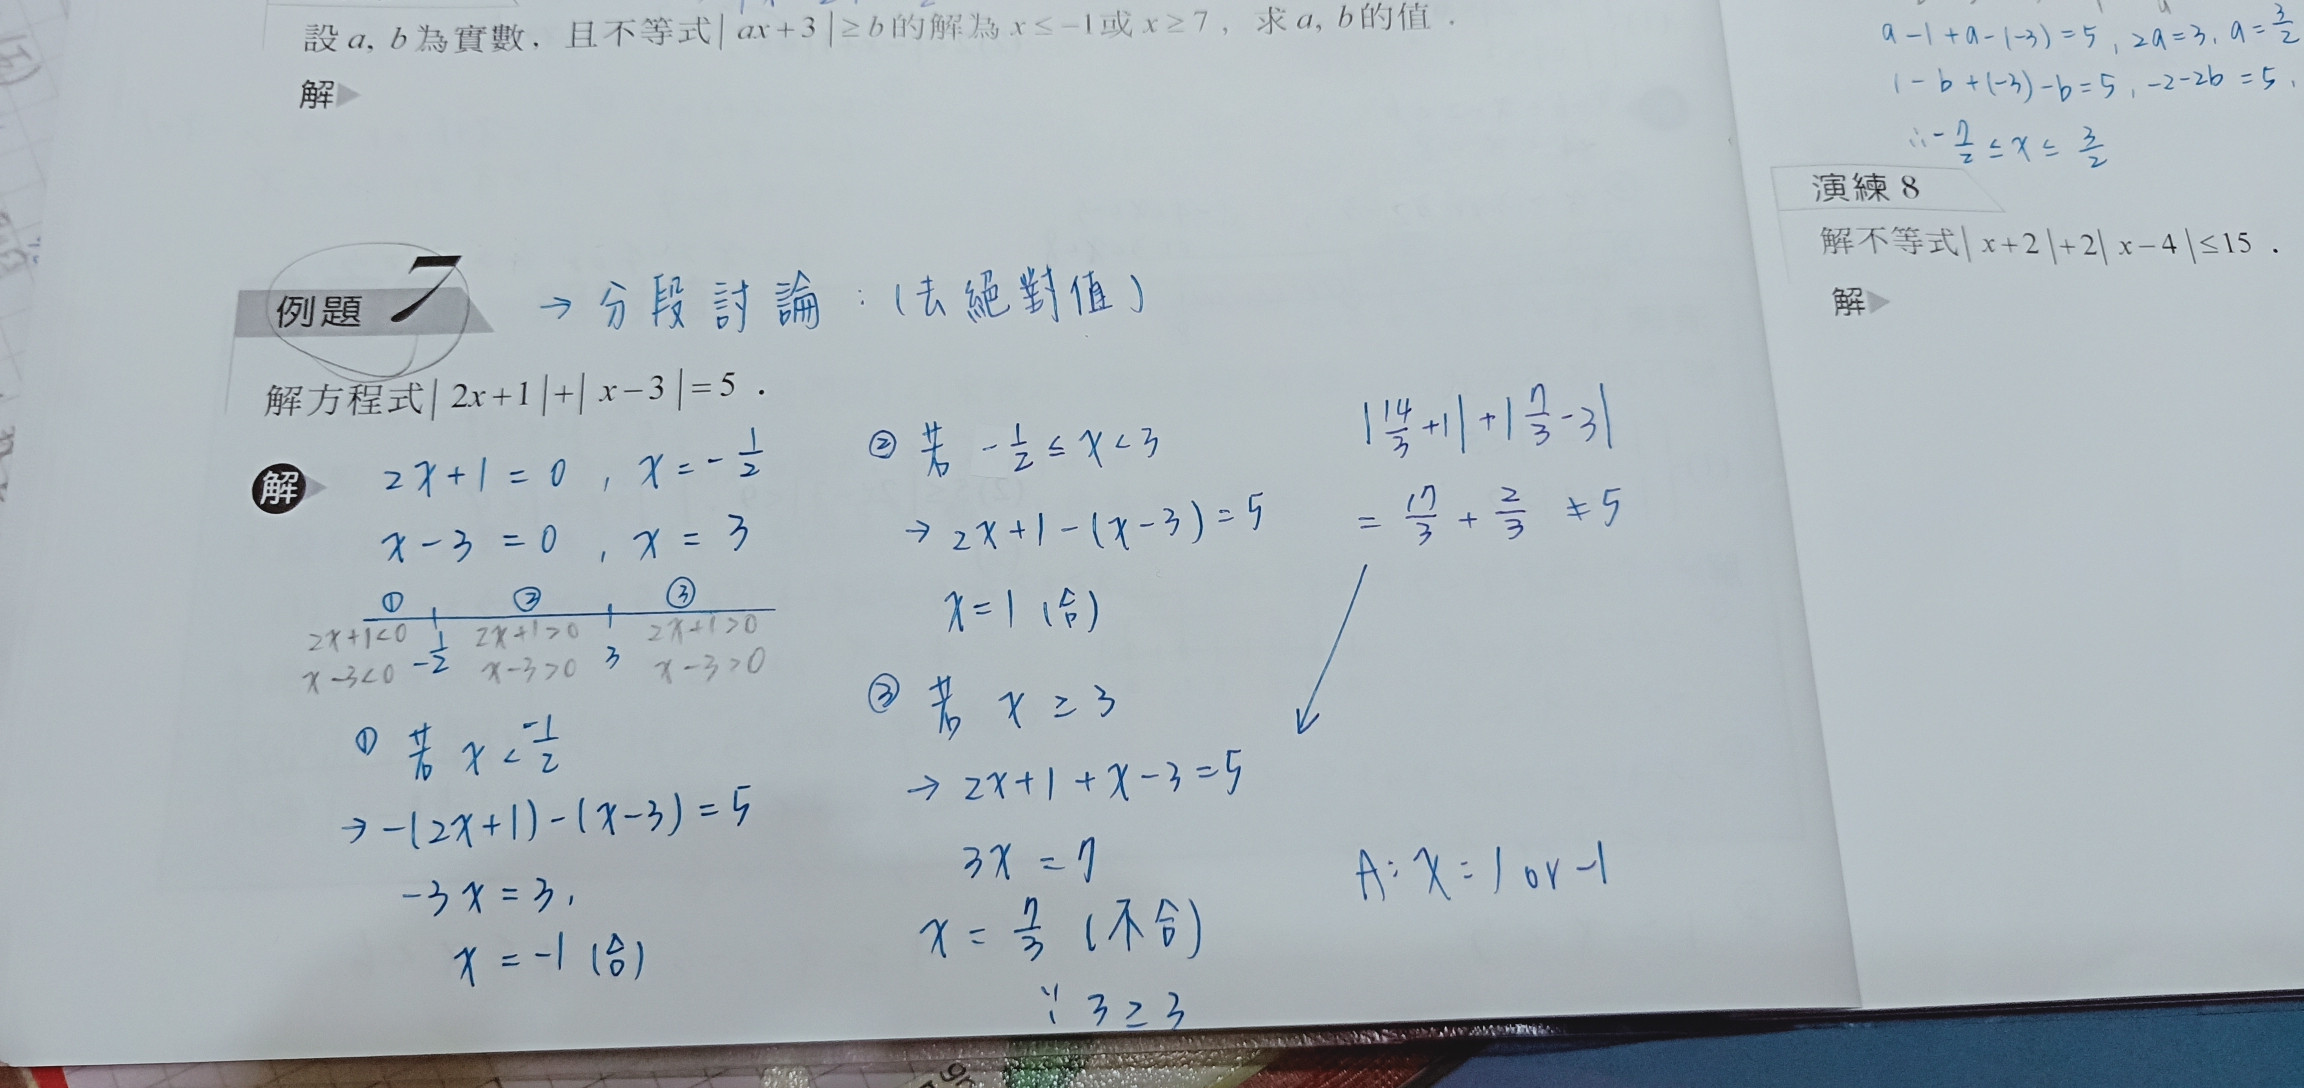 設 a, b 為實數，且不等式| ax+3 |≥b的解為 x≤−1或 x≥7，求 a, b的值．
解
例題 7 → 分段討論：(去絕對值)
解方程式| 2x+1 |+| x−3 |=5．
解 2x+1 = 0 , x = -1/2
x-3 = 0 , x = 3
① ② ③
2x+1<0 2x+1>0 2x+1>0
x-3<0 -1/2 x-3>0 3 x-3>0
① 若 x < -1/2
→ -(2x+1)-(x-3) = 5
-3x = 3,
x = -1 (合)
② 若 -1/2 ≤ x < 3
→ 2x+1-(x-3) = 5
x = 1 (合)
③ 若 x ≥ 3
→ 2x+1+x-3 = 5
3x = 7
x = 7/3 (不合)
∵ 3 ≥ 3
|14/3+1|+|7/3-3|
= 17/3 + 2/3 ≠ 5
A: x = 1 or -1
a-1+a-(-3) = 5, 2a = 3, a = 3/2
1-b+(-3)-b = 5, -2-2b = 5,
∴ -7/2 ≤ x ≤ 3/2
演練 8
解不等式| x+2 |+2| x−4 |≤15．
解